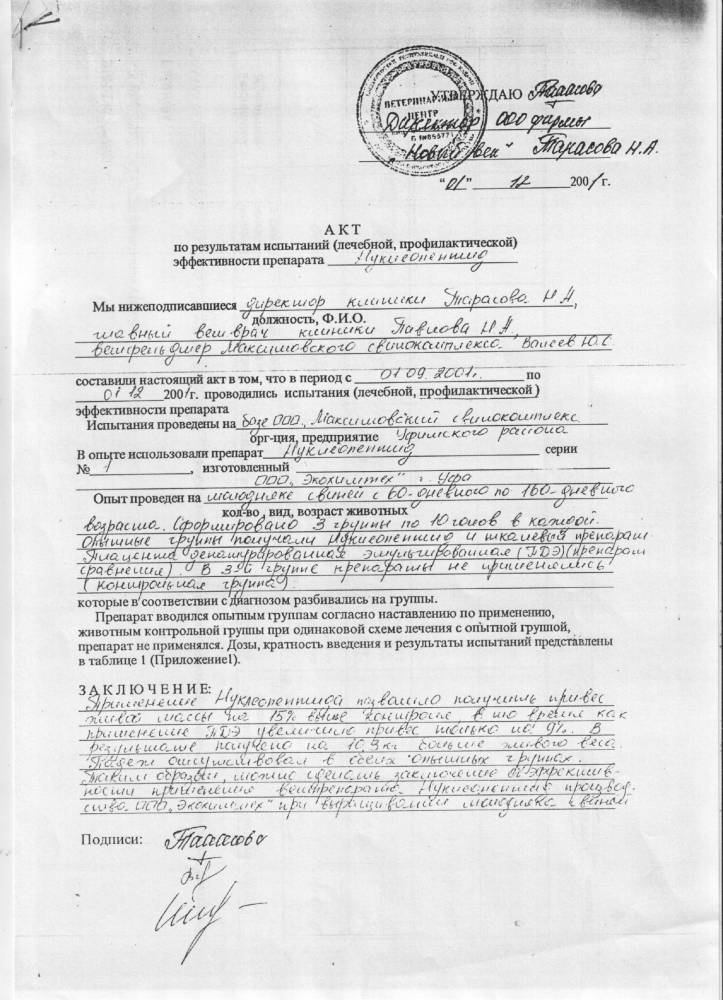 УТВЕРЖДАЮ Тарасова
ВЕТЕРИНАРНЫЙ
ЦЕНТР
Директор ООО фирмы
"Новый век" Тарасова Н.А.
"01" 12 2001 г.
АКТ
по результатам испытаний (лечебной, профилактической)
эффективности препарата Нуклеопептид
Мы нижеподписавшиеся директор клиники Тарасова Н А,
должность, Ф.И.О.
главный вет.врач клиники Павлова Н.А,
ветфельдшер Максимовского свинокомплекса Валеев Ю.С
составили настоящий акт в том, что в период с 01 09. 2001г. по
01 12 2001г. проводились испытания (лечебной, профилактической )
эффективности препарата
Испытания проведены на базе ООО „Максимовский свинокомплекс
орг-ция, предприятие Уфимского района
В опыте использовали препарат Нуклеопептид серии
№ 1 , изготовленный
ООО „Экохимтех" г. Уфа
Опыт проведен на молодняке свиней с 60-дневного по 160-дневного
кол-во , вид, возраст животных
возраста. Сформировано 3 группы по 10 голов в каждой.
Опытные группы получали Нуклеопептид и тканевый препарат
Плацента денатурированная эмульгированная (ПДЭ)(препарат
сравнения). В 3-й группе препараты не применялись
(контрольная группа).
которые в соответствии с диагнозом разбивались на группы.
Препарат вводился опытным группам согласно наставлению по применению,
животным контрольной группы при одинаковой схеме лечения с опытной группой,
препарат не применялся. Дозы, кратность введения и результаты испытаний представлены
в таблице 1 (Приложение1).
ЗАКЛЮЧЕНИЕ:
Применение Нуклеопептида позволило получить привес
живой массы на 15% выше контроля в то время как
применение ПДЭ увеличило привес только на 9%. В
результате получено на 10,3 кг больше живого веса.
Падеж отсутствовал в обеих опытных группах.
Таким образом, можно сделать заключение об эффектив-
ности применения ветпрепарата Нуклеопептид производ-
ства ООО „Экохимтех" при выращивании молодняка свиней
Подписи: Тарасова